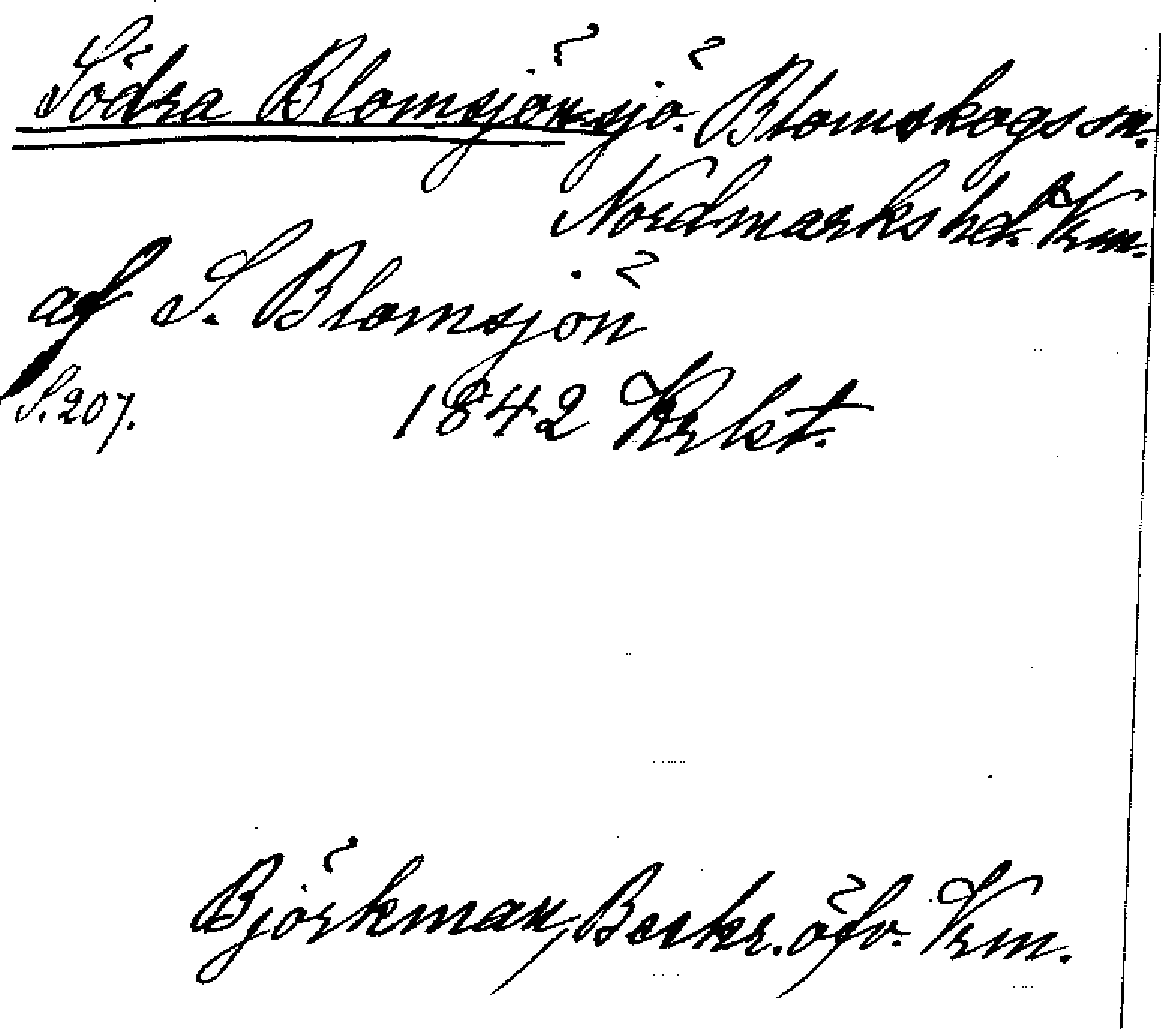 Södra Blomsjön sjö. Blomskogs sn.
Nordmarks hd. Vrm.
af S. Blomsjön
S. 207. 1842 Krlst.
Björkman, Beskr. öfv. Vrm.